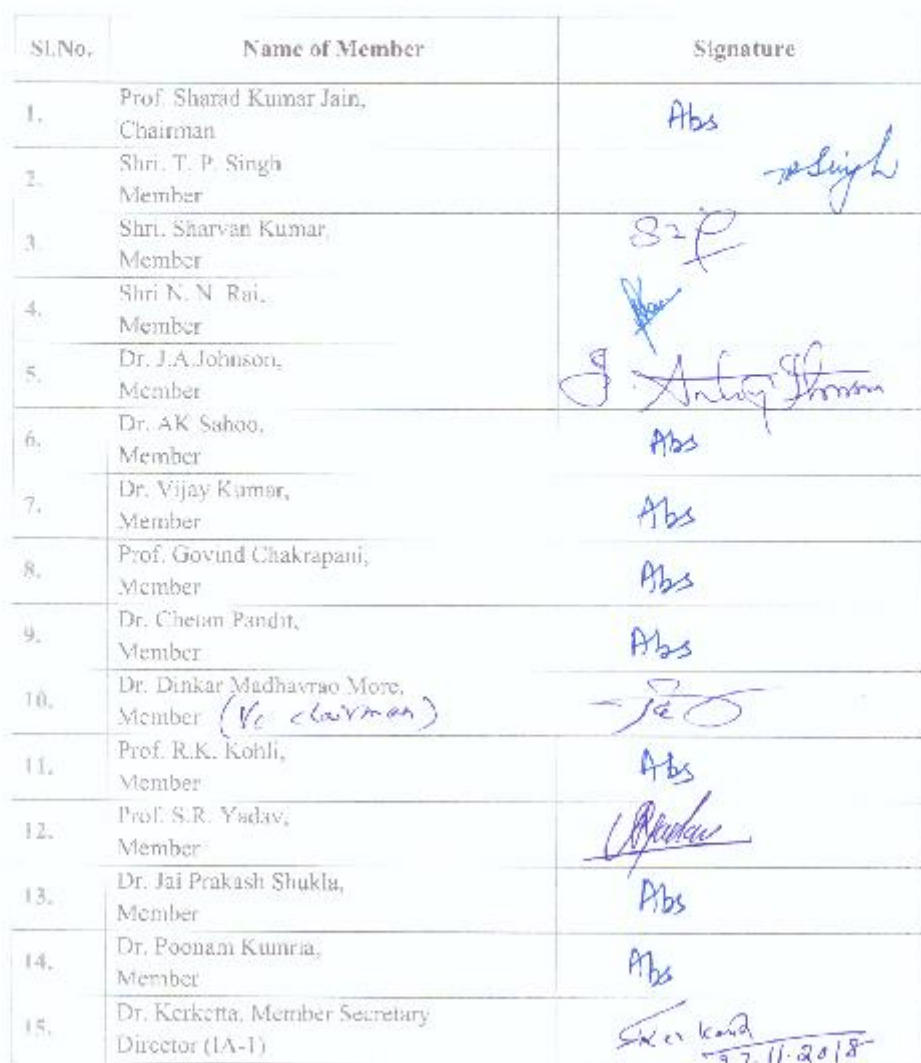 Sl.No. Name of Member Signature
1. Prof. Sharad Kumar Jain, Abs
Chairman
2. Shri. T. P. Singh Singh
Member
3. Shri. Sharvan Kumar,
Member
4. Shri N. N. Rai,
Member
5. Dr. J.A.Johnson, J.
Member
6. Dr. AK Sahoo, Abs
Member
7. Dr. Vijay Kumar, Abs
Member
8. Prof. Govind Chakrapani, Abs
Member
9. Dr. Chetan Pandit, Abs
Member
10. Dr. Dinkar Madhavrao More,
Member (Vc chairman)
11. Prof. R.K. Kohli, Abs
Member
12. Prof. S.R. Yadav,
Member
13. Dr. Jai Prakash Shukla, Abs
Member
14. Dr. Poonam Kumria, Abs
Member
15. Dr. Kerketta, Member Secretary
Director (IA-I) .11.2018